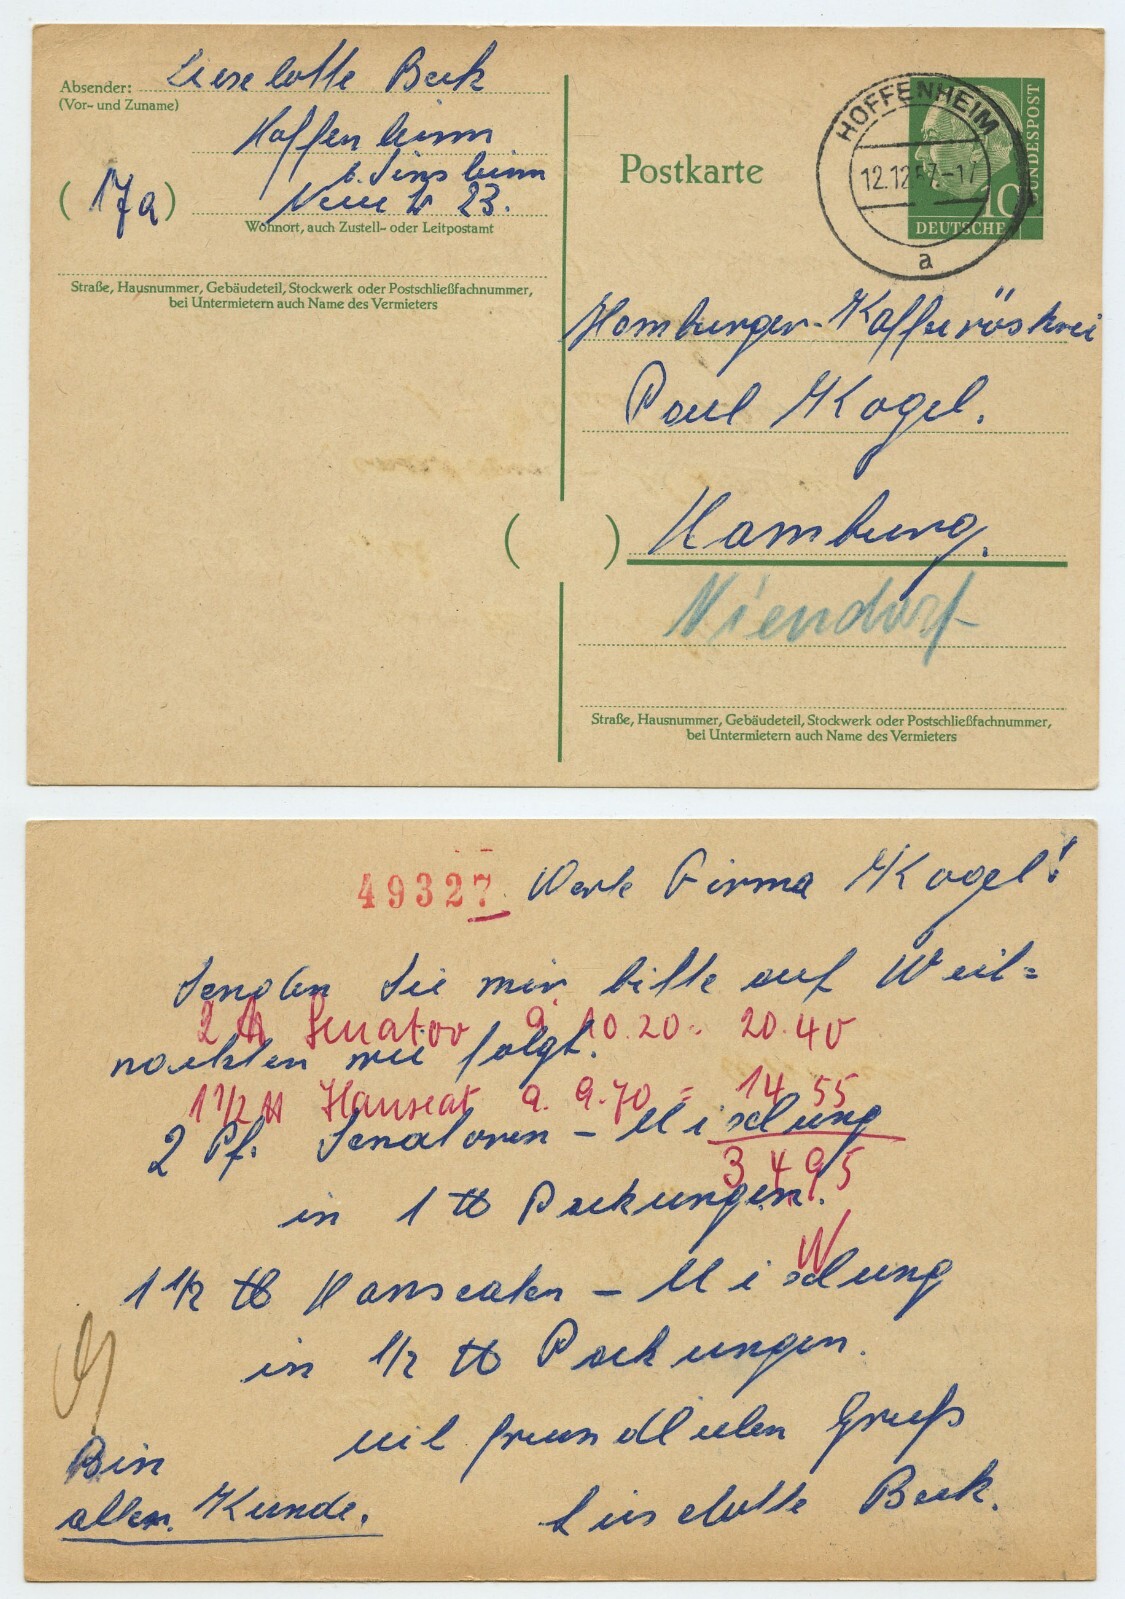 Absender: Lieselotte Beck
(Vor- und Zuname)
Hoffenheim
b. Sinsheim
(17a) Neue W 23.
Wohnort, auch Zustell- oder Leitpostamt
Straße, Hausnummer, Gebäudeteil, Stockwerk oder Postschließfachnummer,
bei Untermietern auch Name des Vermieters
Postkarte
HOFFENHEIM
12.12.57.-17
a
BUNDESPOST
10
DEUTSCHE
Hamburger-Kafferösterei
Paul Kogel.
Hamburg.
Niendorf
Straße, Hausnummer, Gebäudeteil, Stockwerk oder Postschließfachnummer,
bei Untermietern auch Name des Vermieters
49327
Werte Firma Kogel!
Senden Sie mir bitte auf Weih=
2 ℔ Senator a 10.20 = 20.40
nachten wie folgt.
1 1/2 ℔ Hanseat a 9.70 = 14 55
2 Pf. Senatoren - Mischung
34,95
in 1 ℔ Packungen.
1 1/2 ℔ Hanseaten - Mischung
in 1/2 ℔ Packungen.
mit freundlichen Gruß
Bin
alter Kunde.
Lieselotte Beck.